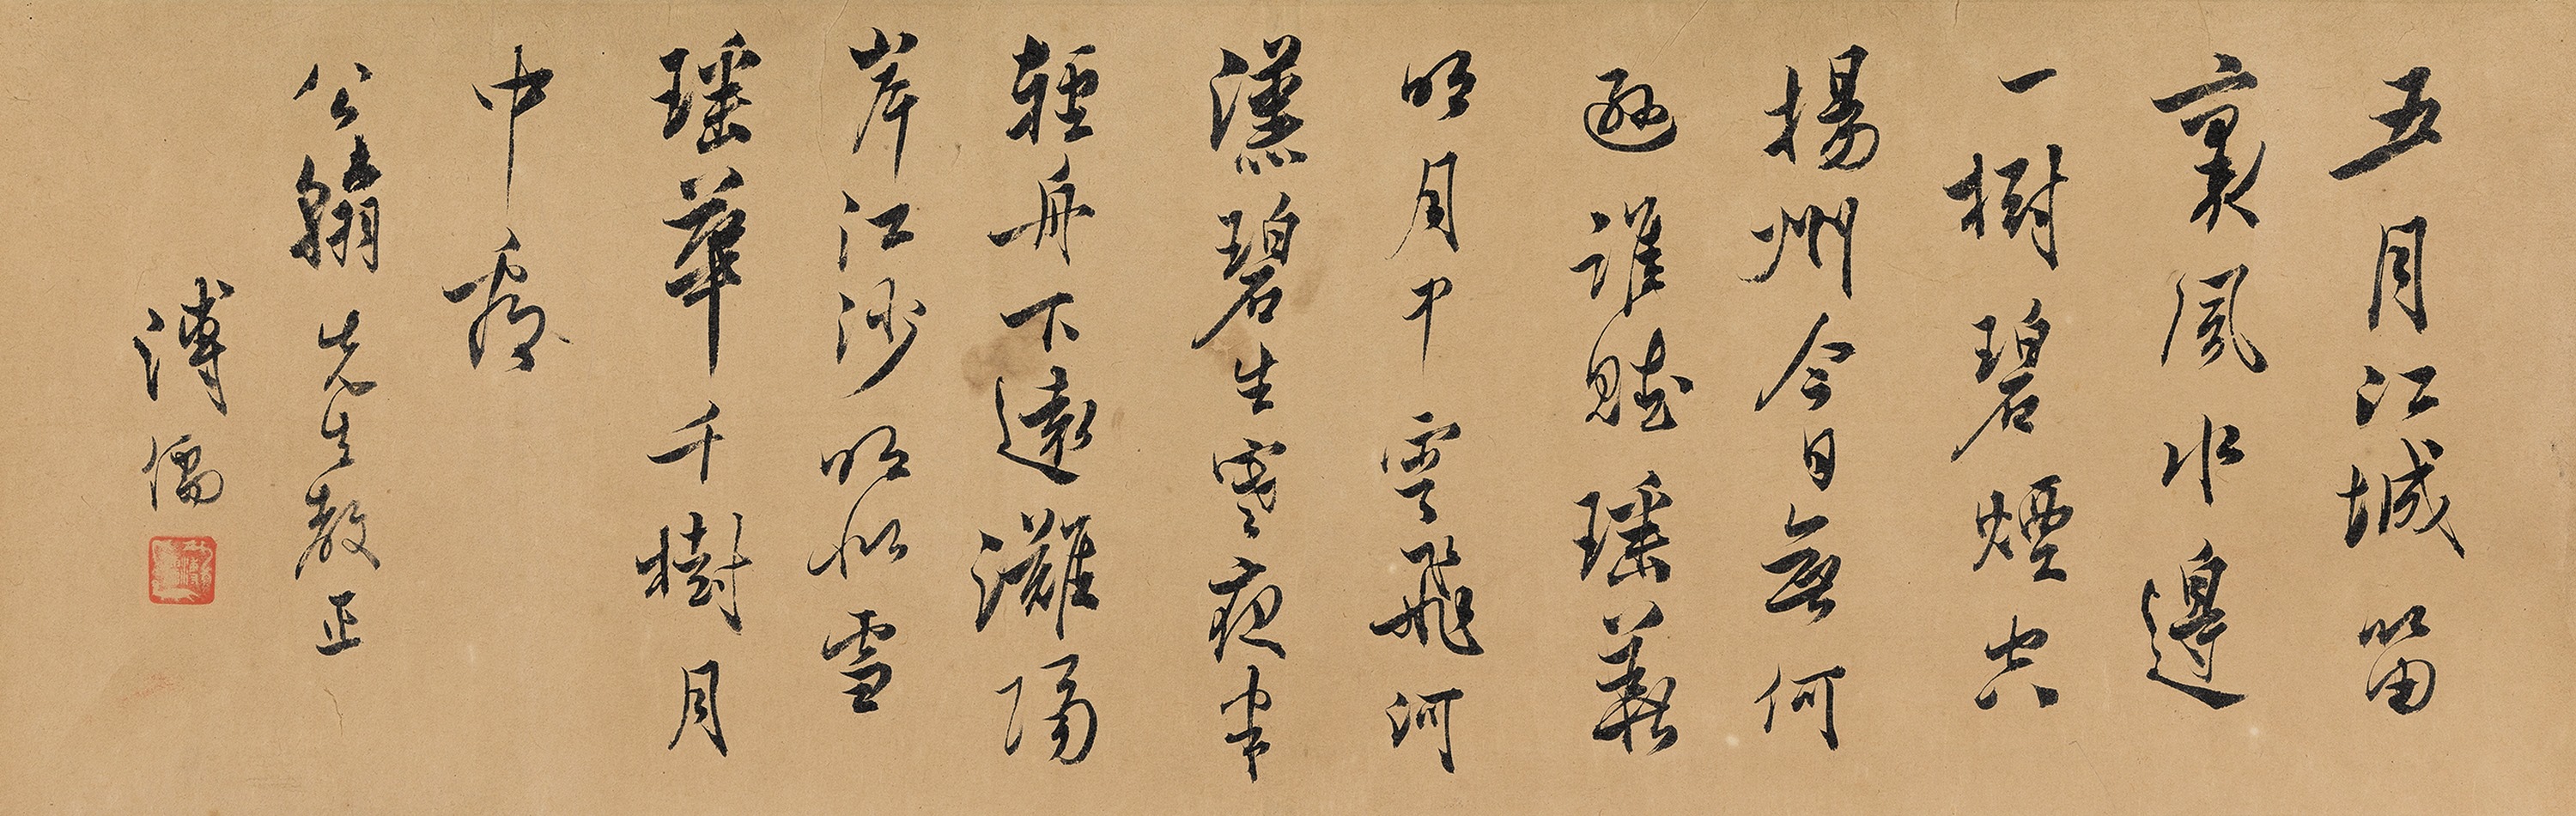 五月江城笛
裏風水邊
一樹碧煙空
揚州今日無何
遜誰賦瑤叢
明月中雲飛河
漢碧生寒夜半
輕舟下遠灘隔
岸江沙明似雪
瑤華千樹月
中看
公翰先生教正
溥儒